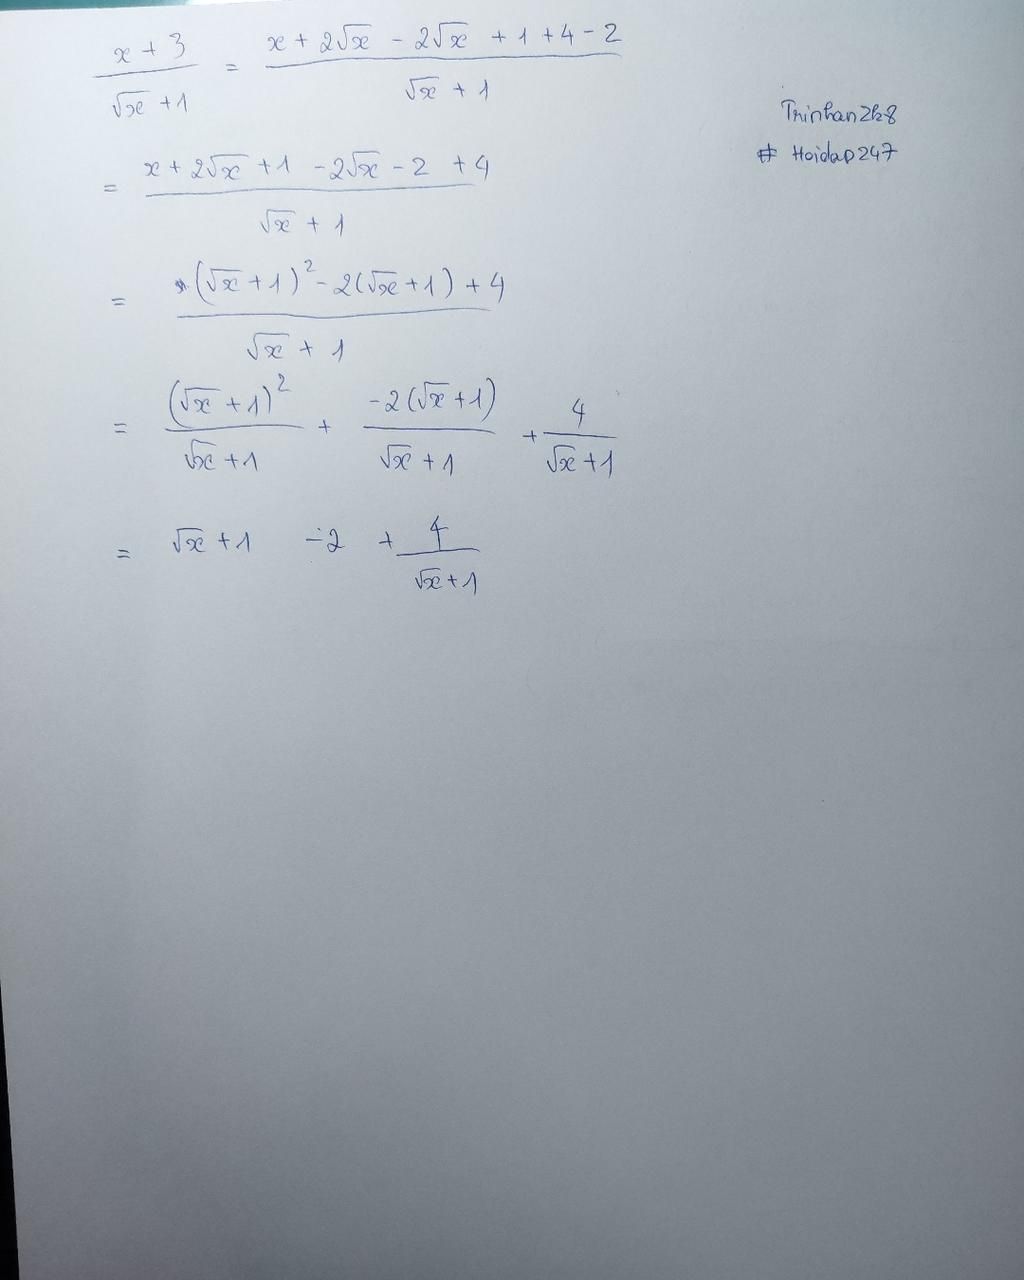 x + 3 / √x + 1 = x + 2√x - 2√x + 1 + 4 - 2 / √x + 1
Trinhan2k8
# Hoidap247
= x + 2√x + 1 - 2√x - 2 + 4 / √x + 1
= (√x + 1)² - 2(√x + 1) + 4 / √x + 1
= (√x + 1)² / √x + 1 + -2(√x + 1) / √x + 1 + 4 / √x + 1
= √x + 1 - 2 + 4 / √x + 1